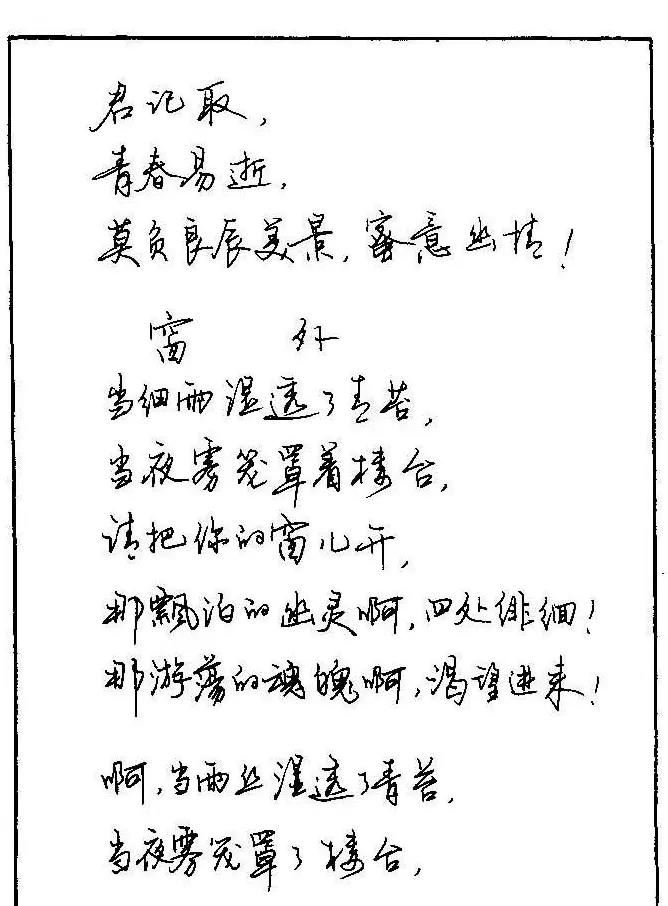 君记取，
青春易逝，
莫负良辰美景，蜜意幽情！
窗 外
当细雨湿透了青苔，
当夜雾笼罩着楼台，
请把你的窗儿开，
那飘泊的幽灵啊，四处徘徊！
那游荡的魂魄啊，渴望进来！
啊，当雨丝湿透了青苔，
当夜雾笼罩了楼台，